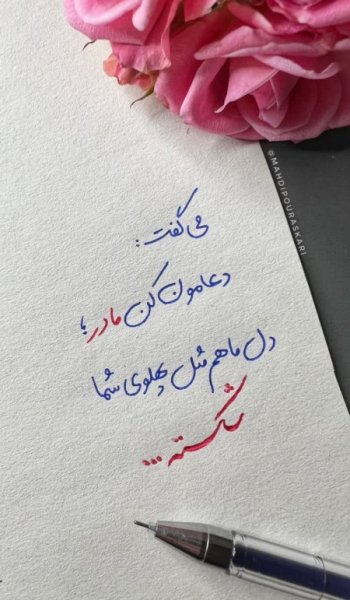 می‌گفت:
دعامون کن مادر؛
دل ما هم مثل پهلوی شما
شکسته...
@MAHDIPOURASKARI